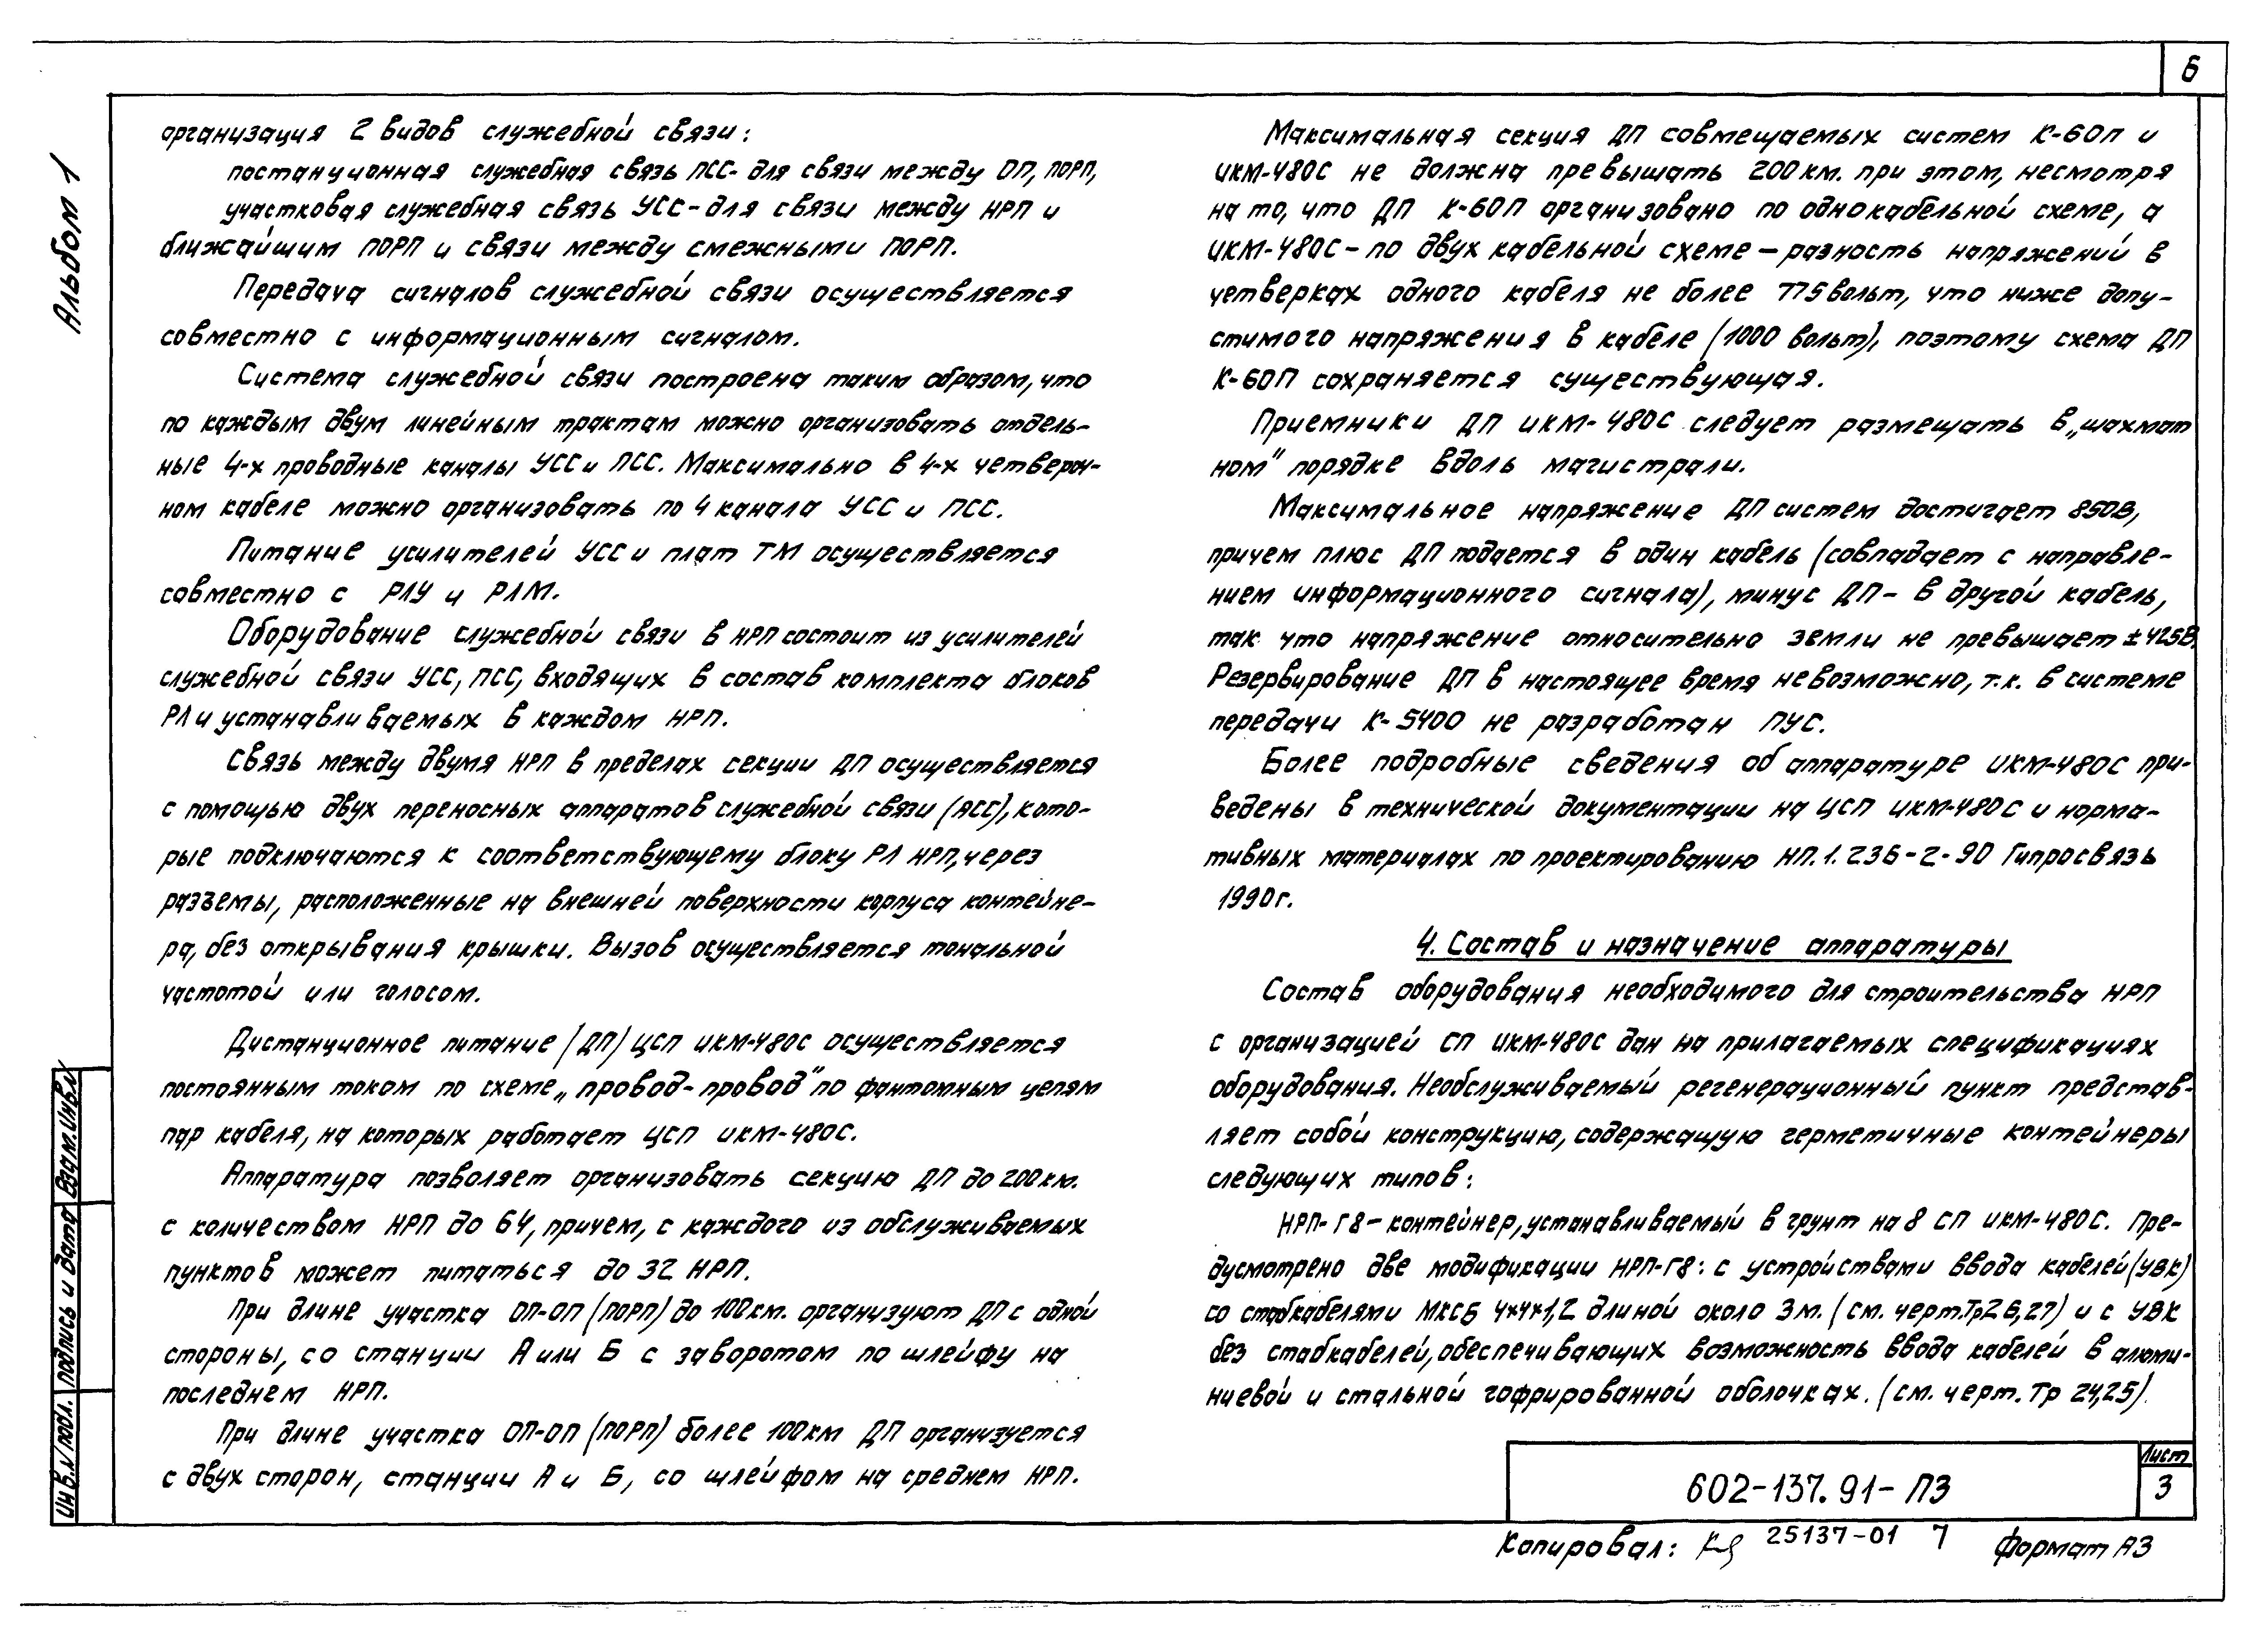 6
Альбом 1
организация 2 видов служебной связи:
постанционная служебная связь ПСС- для связи между ОП, ПОРП,
участковая служебная связь УСС-для связи между НРП и
ближайшим ПОРП и связи между смежными ПОРП.
Передача сигналов служебной связи осуществляется
совместно с информационным сигналом.
Система служебной связи построена таким образом, что
по каждым двум линейным трактам можно организовать отдель-
ные 4-х проводные каналы УСС и ПСС. Максимально в 4-х четвероч-
ном кабеле можно организовать по 4 канала УСС и ПСС.
Питание усилителей УСС и плат ТМ осуществляется
совместно с РЛУ и РЛМ.
Оборудование служебной связи в НРП состоит из усилителей
служебной связи УСС, ПСС, входящих в состав комплекта блоков
РЛ и устанавливаемых в каждом НРП.
Связь между двумя НРП в пределах секции ДП осуществляется
с помощью двух переносных аппаратов служебной связи (АСС), кото-
рые подключаются к соответствующему блоку РЛ НРП, через
разъемы, расположенные на внешней поверхности корпуса контейне-
ра, без открывания крышки. Вызов осуществляется тональной
частотой или голосом.
Дистанционное питание (ДП) ЦСП ИКМ-480С осуществляется
постоянным током по схеме „провод-провод" по фантомным цепям
пар кабеля, на которых работает ЦСП ИКМ-480С.
Аппаратура позволяет организовать секцию ДП до 200км.
с количеством НРП до 64, причем, с каждого из обслуживаемых
пунктов может питаться до 32 НРП.
При длине участка ОП-ОП (ПОРП) до 100км. организуют ДП с одной
стороны, со станции А или Б с заворотом по шлейфу на
последнем НРП.
При длине участка ОП-ОП (ПОРП) более 100км ДП организуется
с двух сторон, станции А и Б, со шлейфом на среднем НРП.
Максимальная секция ДП совмещаемых систем К-60П и
ИКМ-480С не должна превышать 200км. при этом, несмотря
на то, что ДП К-60П организовано по однокабельной схеме, а
ИКМ-480С-по двух кабельной схеме – разность напряжений в
четверках одного кабеля не более 775 вольт, что ниже допу-
стимого напряжения в кабеле (1000 вольт), поэтому схема ДП
К-60П сохраняется существующая.
Приемники ДП ИКМ-480С следует размещать в „шахмат
ном" порядке вдоль магистрали.
Максимальное напряжение ДП систем достигает 850В,
причем плюс ДП подается в один кабель (совпадает с направле-
нием информационного сигнала), минус ДП- в другой кабель,
так что напряжение относительно земли не превышает ±425В.
Резервирование ДП в настоящее время невозможно, т.к. в системе
передачи К-5400 не разработан ПУС.
Более подробные сведения об аппаратуре ИКМ-480С при-
ведены в технической документации на ЦСП ИКМ-480С и норма-
тивных материалах по проектированию НП.1.236-2-90 Гипросвязь
1990г.
4. Состав и назначение аппаратуры
Состав оборудования необходимого для строительства НРП
с организацией СП ИКМ-480С дан на прилагаемых спецификациях
оборудования. Необслуживаемый регенерационный пункт представ-
ляет собой конструкцию, содержащую герметичные контейнеры
следующих типов:
НРП-Г8-контейнер, устанавливаемый в грунт на 8 СП ИКМ-480С. Пре-
дусмотрено две модификации НРП-Г8: с устройствами ввода кабелей (УВК)
со стабкабелями МКСБ 4×4×1,2 длиной около 3м. (см. черт. Тр26,27) и с УВК
без стабкабелей, обеспечивающих возможность ввода кабелей в алюми-
ниевой и стальной гофрированной оболочках. (см. черт. Тр 24,25).
ИНВ.N подл.
подпись и дата
Взам.инв.N
602-137.91-ПЗ
Лист
3
Копировал:
25137-01 7
Формат А3